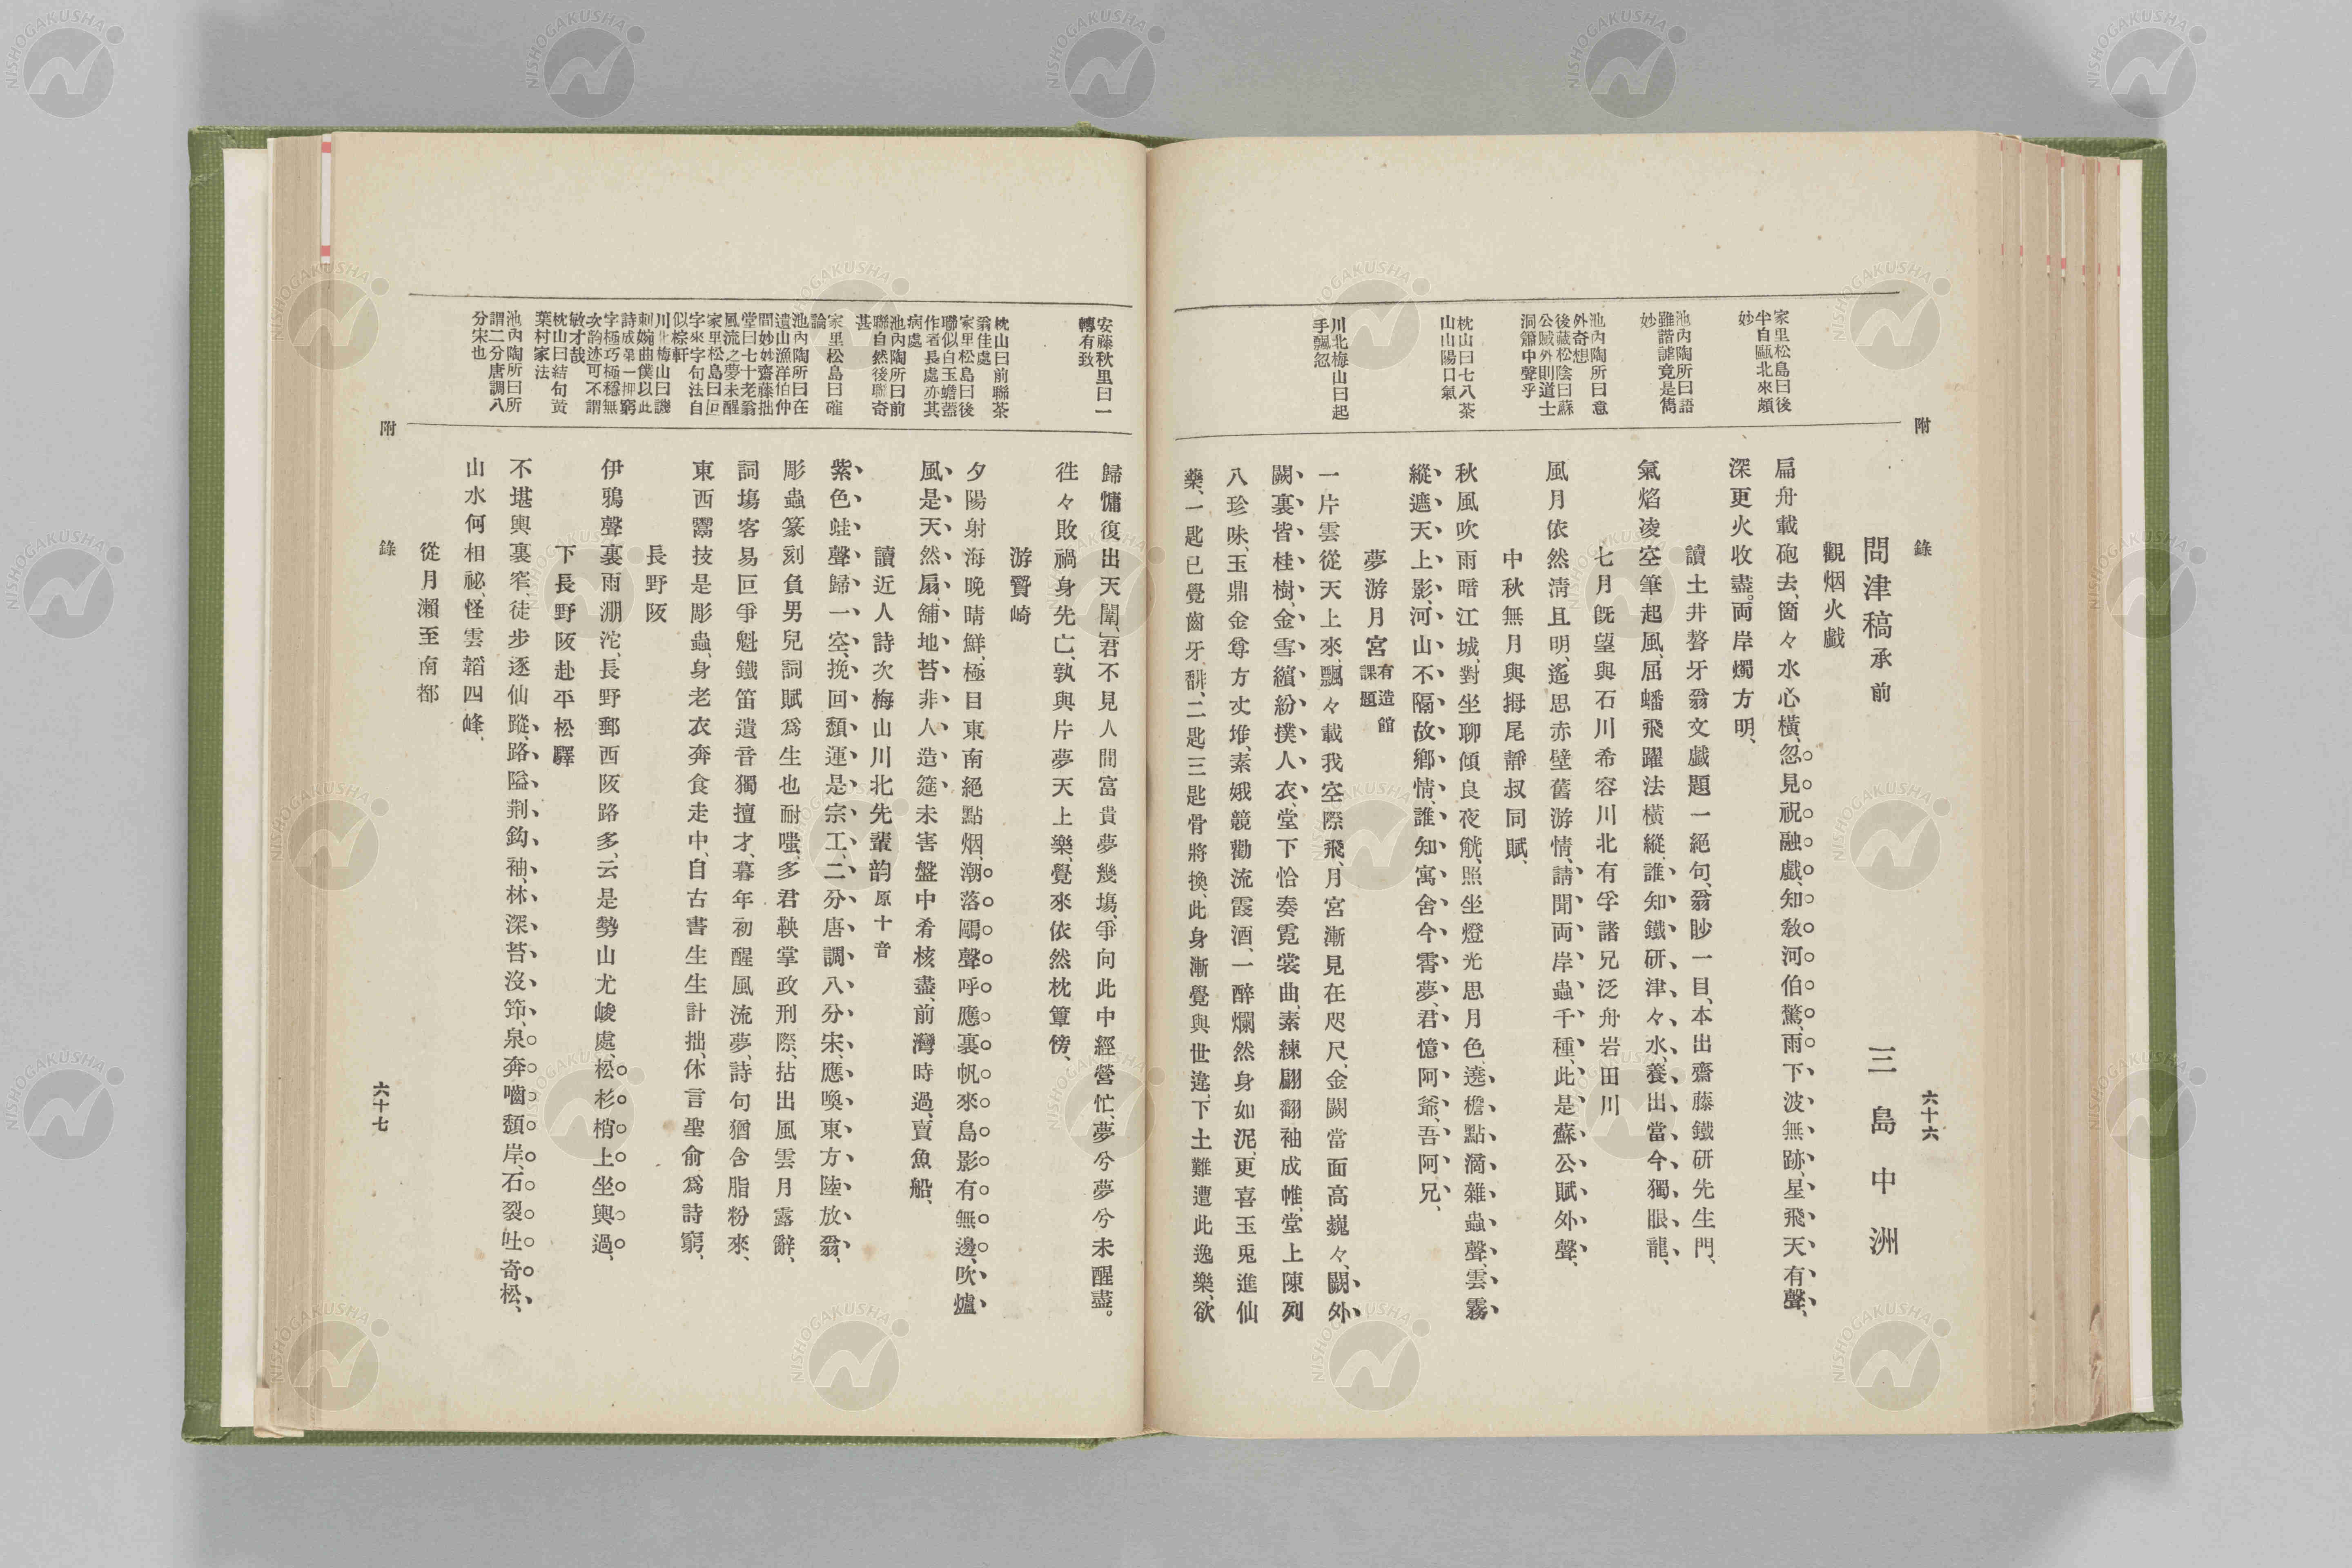 附錄
六十六
家里松島曰後
半自甌北來頗
妙
池內陶所曰語
雖諧謔竟是雋
妙
池內陶所曰意
外奇想
後藏松陰曰蘇
公賦外則道士
洞簫中聲乎
枕山曰七八茶
山山陽口氣
川北梅山曰起
手飄忽
問津稿承前 三島中洲
觀烟火戲
扁舟載砲去、箇々水心橫、忽見祝融戲、知敎河伯驚、雨下波無跡、星飛天有聲、
深更火收盡。両岸燭方明、
讀土井聱牙翁文戲題一絕句、翁眇一目、本出齋藤鐵研先生門、
氣焰凌空筆起風、屈蟠飛躍法橫縱、誰知鐵研津々水、養出當今獨眼龍、
七月旣望與石川希容川北有孚諸兄泛舟岩田川
風月依然淸且明、遙思赤壁舊游情、請聞両岸蟲千種、此是蘇公賦外聲、
中秋無月與拇尾靜叔同賦、
秋風吹雨暗江城、對坐聊傾良夜觥、照坐燈光思月色、遶檐點滴雜蟲聲、雲霧
縱遮天上影、河山不隔故鄕情、誰知寓舍今霄夢、君憶阿爺、吾阿兄、
夢游月宮有造館課題
一片雲從天上來、飄々載我空際飛、月宮漸見在咫尺、金闕當面高巍々、闕外
闕裏皆桂樹、金雪繽紛撲人衣、堂下恰奏霓裳曲、素練翩翻袖成帷、堂上陳列
八珍味、玉鼎金尊方丈堆、素娥競勸流霞酒、一醉爛然身如泥、更喜玉兎進仙
藥、一匙已覺齒牙馡、二匙三匙骨將換、此身漸覺與世違、下土難遭此逸樂、欲
安藤秋里曰一
轉有致
枕山曰前聯茶
翁佳處
家里松島曰後
聯似白玉蟾蓋
作者長處亦其
病處
池內陶所曰前
聯自然後聯奇
甚
家里松島曰確
論
池內陶所曰在
遺山漁洋伯仲
間妙妙齋藤拙
堂曰七十老翁
風流之夢未醒
家里松島曰回
字來字句法自
似棕軒
川北梅山曰譏
刺婉曲僕以此
詩成第一抑窮
字極巧極穩無
次韵迹可不謂
敏才哉
枕山曰結句黃
葉村家法
池內陶所曰所
謂二分唐調八
分宋也
歸慵復出天闈、君不見人間富貴夢幾塲、爭向此中經營忙、夢兮夢兮未醒盡。
徃々敗禍身先亡、孰與片夢天上樂、覺來依然枕簟傍、
游贄崎
夕陽射海晚晴鮮、極目東南絕點烟、潮落鷗聲呼應裏、帆來島影有無邊、吹爐
風是天然扇、舖地苔非人造筵、未害盤中肴核盡、前灣時過賣魚船、
讀近人詩次梅山川北先輩韵原十音
紫色蛙聲歸一空、挽回頹運是宗工、二分唐調八分宋、應喚東方陸放翁、
彫蟲篆刻負男兒、詞賦爲生也耐嗤、多君鞅掌政刑際、拈出風雲月露辭、
詞塲客易巨爭魁、鐵笛遺音獨擅才、暮年初醒風流夢、詩句猶含脂粉來、
東西鬻技是彫蟲、身老衣奔食走中、自古書生生計拙、休言聖俞爲詩窮、
長野阪
伊鴉聲裏雨淜沱、長野郵西阪路多、云是勢山尤峻處、松杉梢上坐輿過、
下長野阪赴平松驛
不堪輿裏窄、徒步逐仙蹤、路隘荆鈎袖、林深苔沒笻、泉奔嚙頹岸、石裂吐奇松、
山水何相祕、怪雲韜四峰、
從月瀨至南都
附錄
六十七